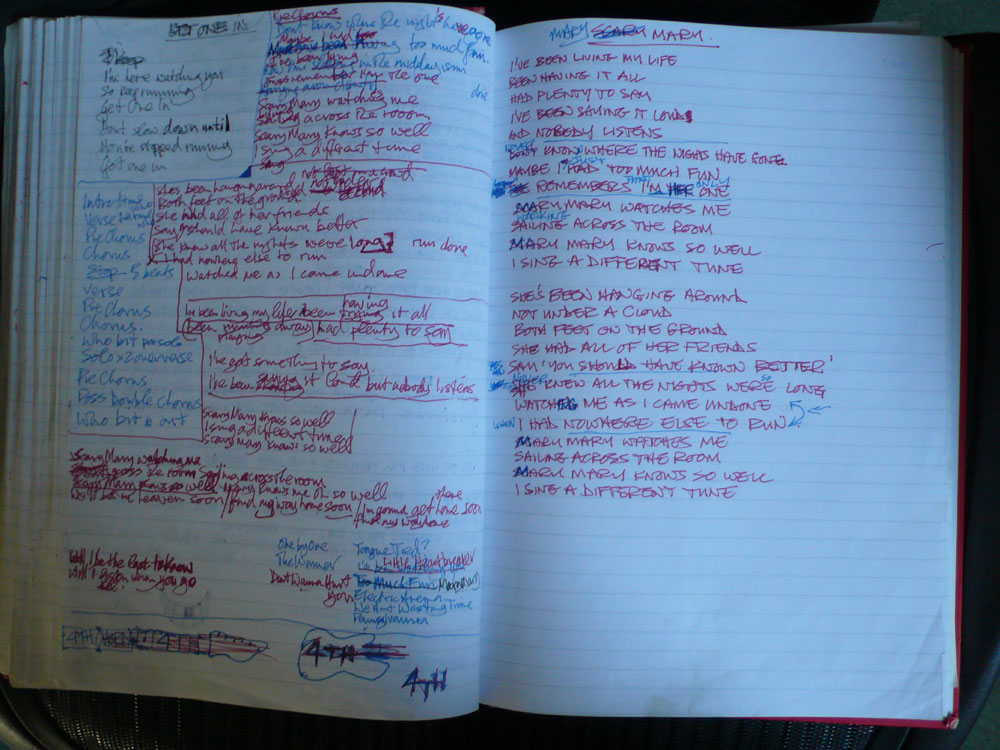 GET ONE IN
I'm here watching you
So keep running
Get One In
Dont slow down until
You've stopped running
Get one in
PreChorus
Dont know where the night's have gone
Maybe I had
having too much fun
I've been living
in the midday sun
the one
done
Scary Mary watches me
across the room
Scary Mary knows so well
I sing a different tune
Intro
Verse
PreChorus
Chorus
Stop - 5 beats
Verse
PreChorus
Chorus.
Who bit presolo
Solo x2 one verse
PreChorus
Poss double chorus
Who bit & out
She's been hanging around
Both feet on the ground
She had all of her friends
Say should have known better
She knew all the nights were long
run done
I had nowhere else to run
Watched me as I came undone
I've been living my life been having it all
been away had plenty to say
playing
I've got something to say
I've been it but nobody listens
Scary Mary knows so well
I sing a different tune
Scary Mary knows so well
Scary Mary watching me
across the room Sailing across the room
Scary Mary knows so well Mary knows me oh so well
Will be in heaven soon / find my way home soon / I'm gonna get home soon
there
find my way home
Will I be the last to know
Will I when you go
One by One
The Winner
Dont Wanna Hurt
You
Tongue Tied?
Little Heartbreaker
Too Much Fun
Electric Arena
We Aint Wasting Time
Pennsylvania
4TH
4TH
4TH
4TH
MARY SCARY MARY.
I'VE BEEN LIVING MY LIFE
BEEN HAVING IT ALL
HAD PLENTY TO SAY
I'VE BEEN SAYING IT LOUD
AND NOBODY LISTENS
DON'T KNOW WHERE THE NIGHTS HAVE GONE
JUST
MAYBE I HAD TOO MUCH FUN
THAT ONLY
REMEMBERS I'M HER ONE
SCARY MARY WATCHES ME
SAILING ACROSS THE ROOM
MARY MARY KNOWS SO WELL
I SING A DIFFERENT TUNE
SHE'S BEEN HANGING AROUND
NOT UNDER A CLOUD
BOTH FEET ON THE GROUND
SHE HAD ALL OF HER FRIENDS
SAY 'YOU SHOULD HAVE KNOWN BETTER'
SO
SHE KNEW ALL THE NIGHTS WERE LONG
WATCHING ME AS I CAME UNDONE
WHEN I HAD NOWHERE ELSE TO RUN
MARY MARY WATCHES ME
SAILING ACROSS THE ROOM
MARY MARY KNOWS SO WELL
I SING A DIFFERENT TUNE